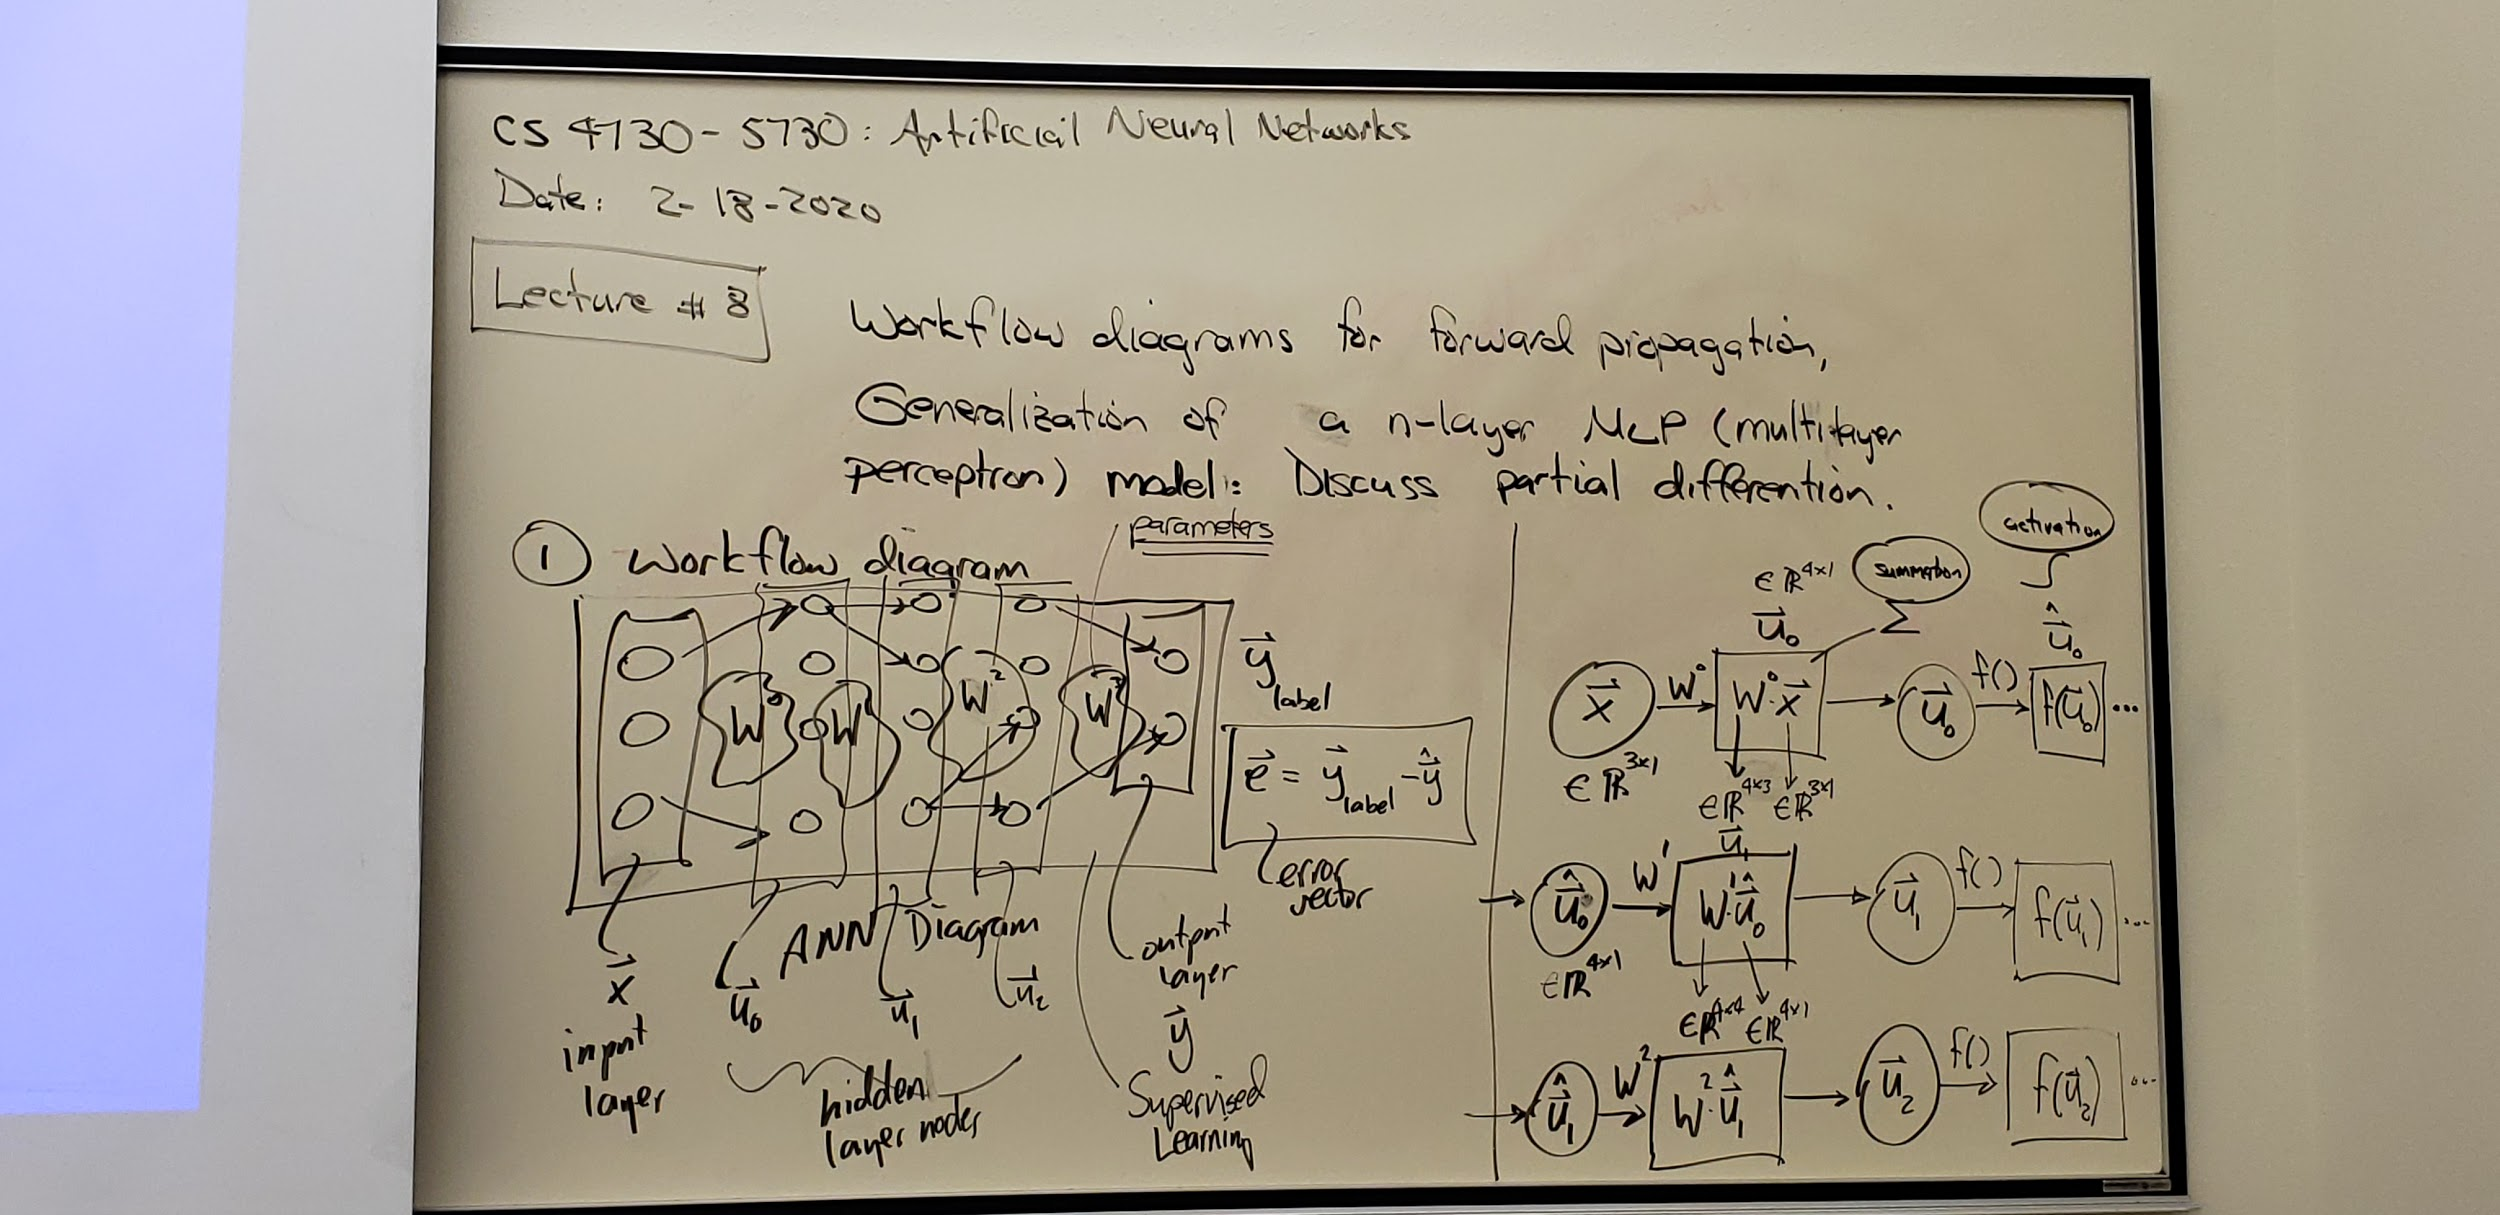 CS 4730-5730: Artificial Neural Networks
Date: 2-18-2020
Lecture # 8
Workflow diagrams for forward propagation,
Generalization of a n-layer MLP (multilayer
perceptron) model: Discuss partial differention.
parameters
① Workflow diagram
W⁰ W¹ W² W³
y⃗ label
e⃗ = y⃗ label - ŷ⃗
error
vector
ANN Diagram
x⃗
input
layer
u⃗₀ u⃗₁ u⃗₂
hidden
layer nodes
output
layer
y⃗
Supervised
Learning
activation
summation
∈ℝ⁴ˣ¹
u⃗₀ Σ ∫ û⃗₀
x⃗ W⁰ W⁰·x⃗ u⃗₀ f() f(u⃗₀) ...
∈ℝ³ˣ¹ ∈ℝ⁴ˣ³ ∈ℝ³ˣ¹
u⃗₁
û⃗₀ W¹ W¹·û⃗₀ u⃗₁ f() f(u⃗₁) ...
∈ℝ⁴ˣ¹ ∈ℝ⁴ˣ⁴ ∈ℝ⁴ˣ¹
û⃗₁ W² W²·û⃗₁ u⃗₂ f() f(u⃗₂) ...